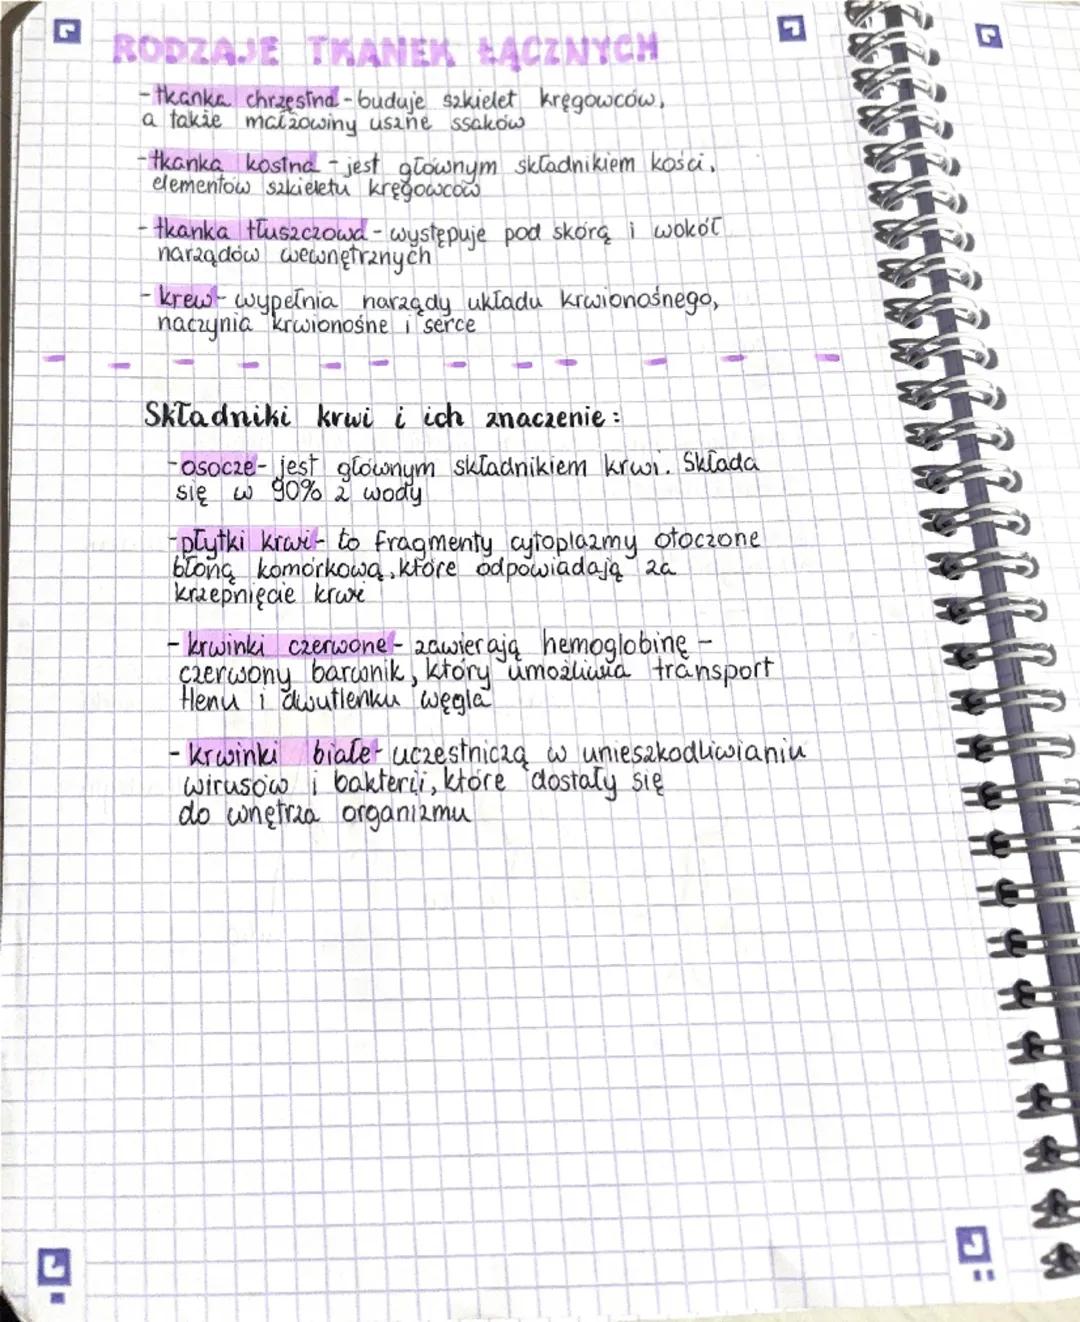 RODZAJE TKANEK ŁĄCZNYCH
- tkanka chrzęstna - buduje szkielet kręgowców,
a także małżowiny uszne ssaków
- tkanka kostna - jest głównym składnikiem kości,
elementów szkieletu kręgowców
- tkanka tłuszczowa - występuje pod skórą i wokół
narządów wewnętrznych
- krew - wypełnia narządy układu krwionośnego,
naczynia krwionośne i serce
Składniki krwi i ich znaczenie:
- osocze - jest głównym składnikiem krwi. Składa
się w 90% z wody
- płytki krwi - to fragmenty cytoplazmy otoczone
błoną komórkową, które odpowiadają za
krzepnięcie krwi
- krwinki czerwone - zawierają hemoglobinę -
czerwony barwnik, który umożliwia transport
tlenu i dwutlenku węgla
- krwinki białe - uczestniczą w unieszkodliwianiu
wirusów i bakterii, które dostały się
do wnętrza organizmu